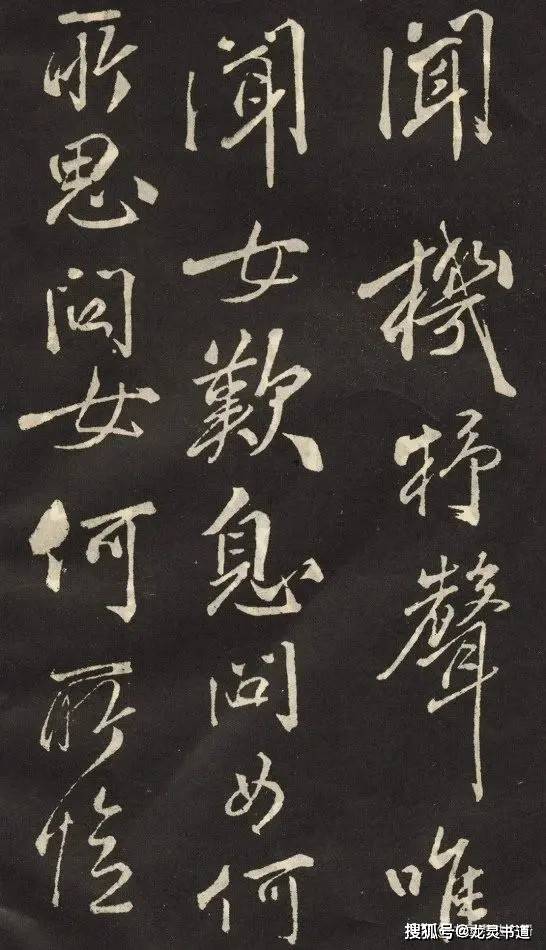 闻機杼聲唯
闻女歎息問女何
所思問女何所憶
搜狐号@龙灵书道